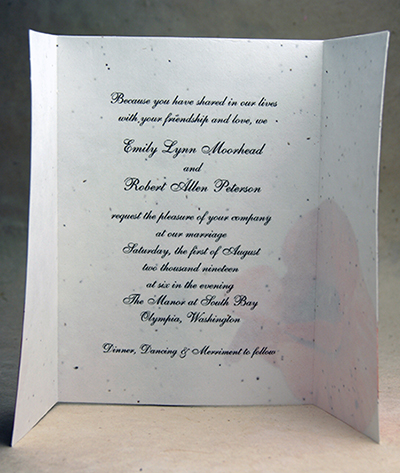 Because you have shared in our lives
with your friendship and love, we
Emily Lynn Moorhead
and
Robert Allen Peterson
request the pleasure of your company
at our marriage
Saturday, the first of August
two thousand nineteen
at six in the evening
The Manor at South Bay
Olympia, Washington
Dinner, Dancing & Merriment to follow